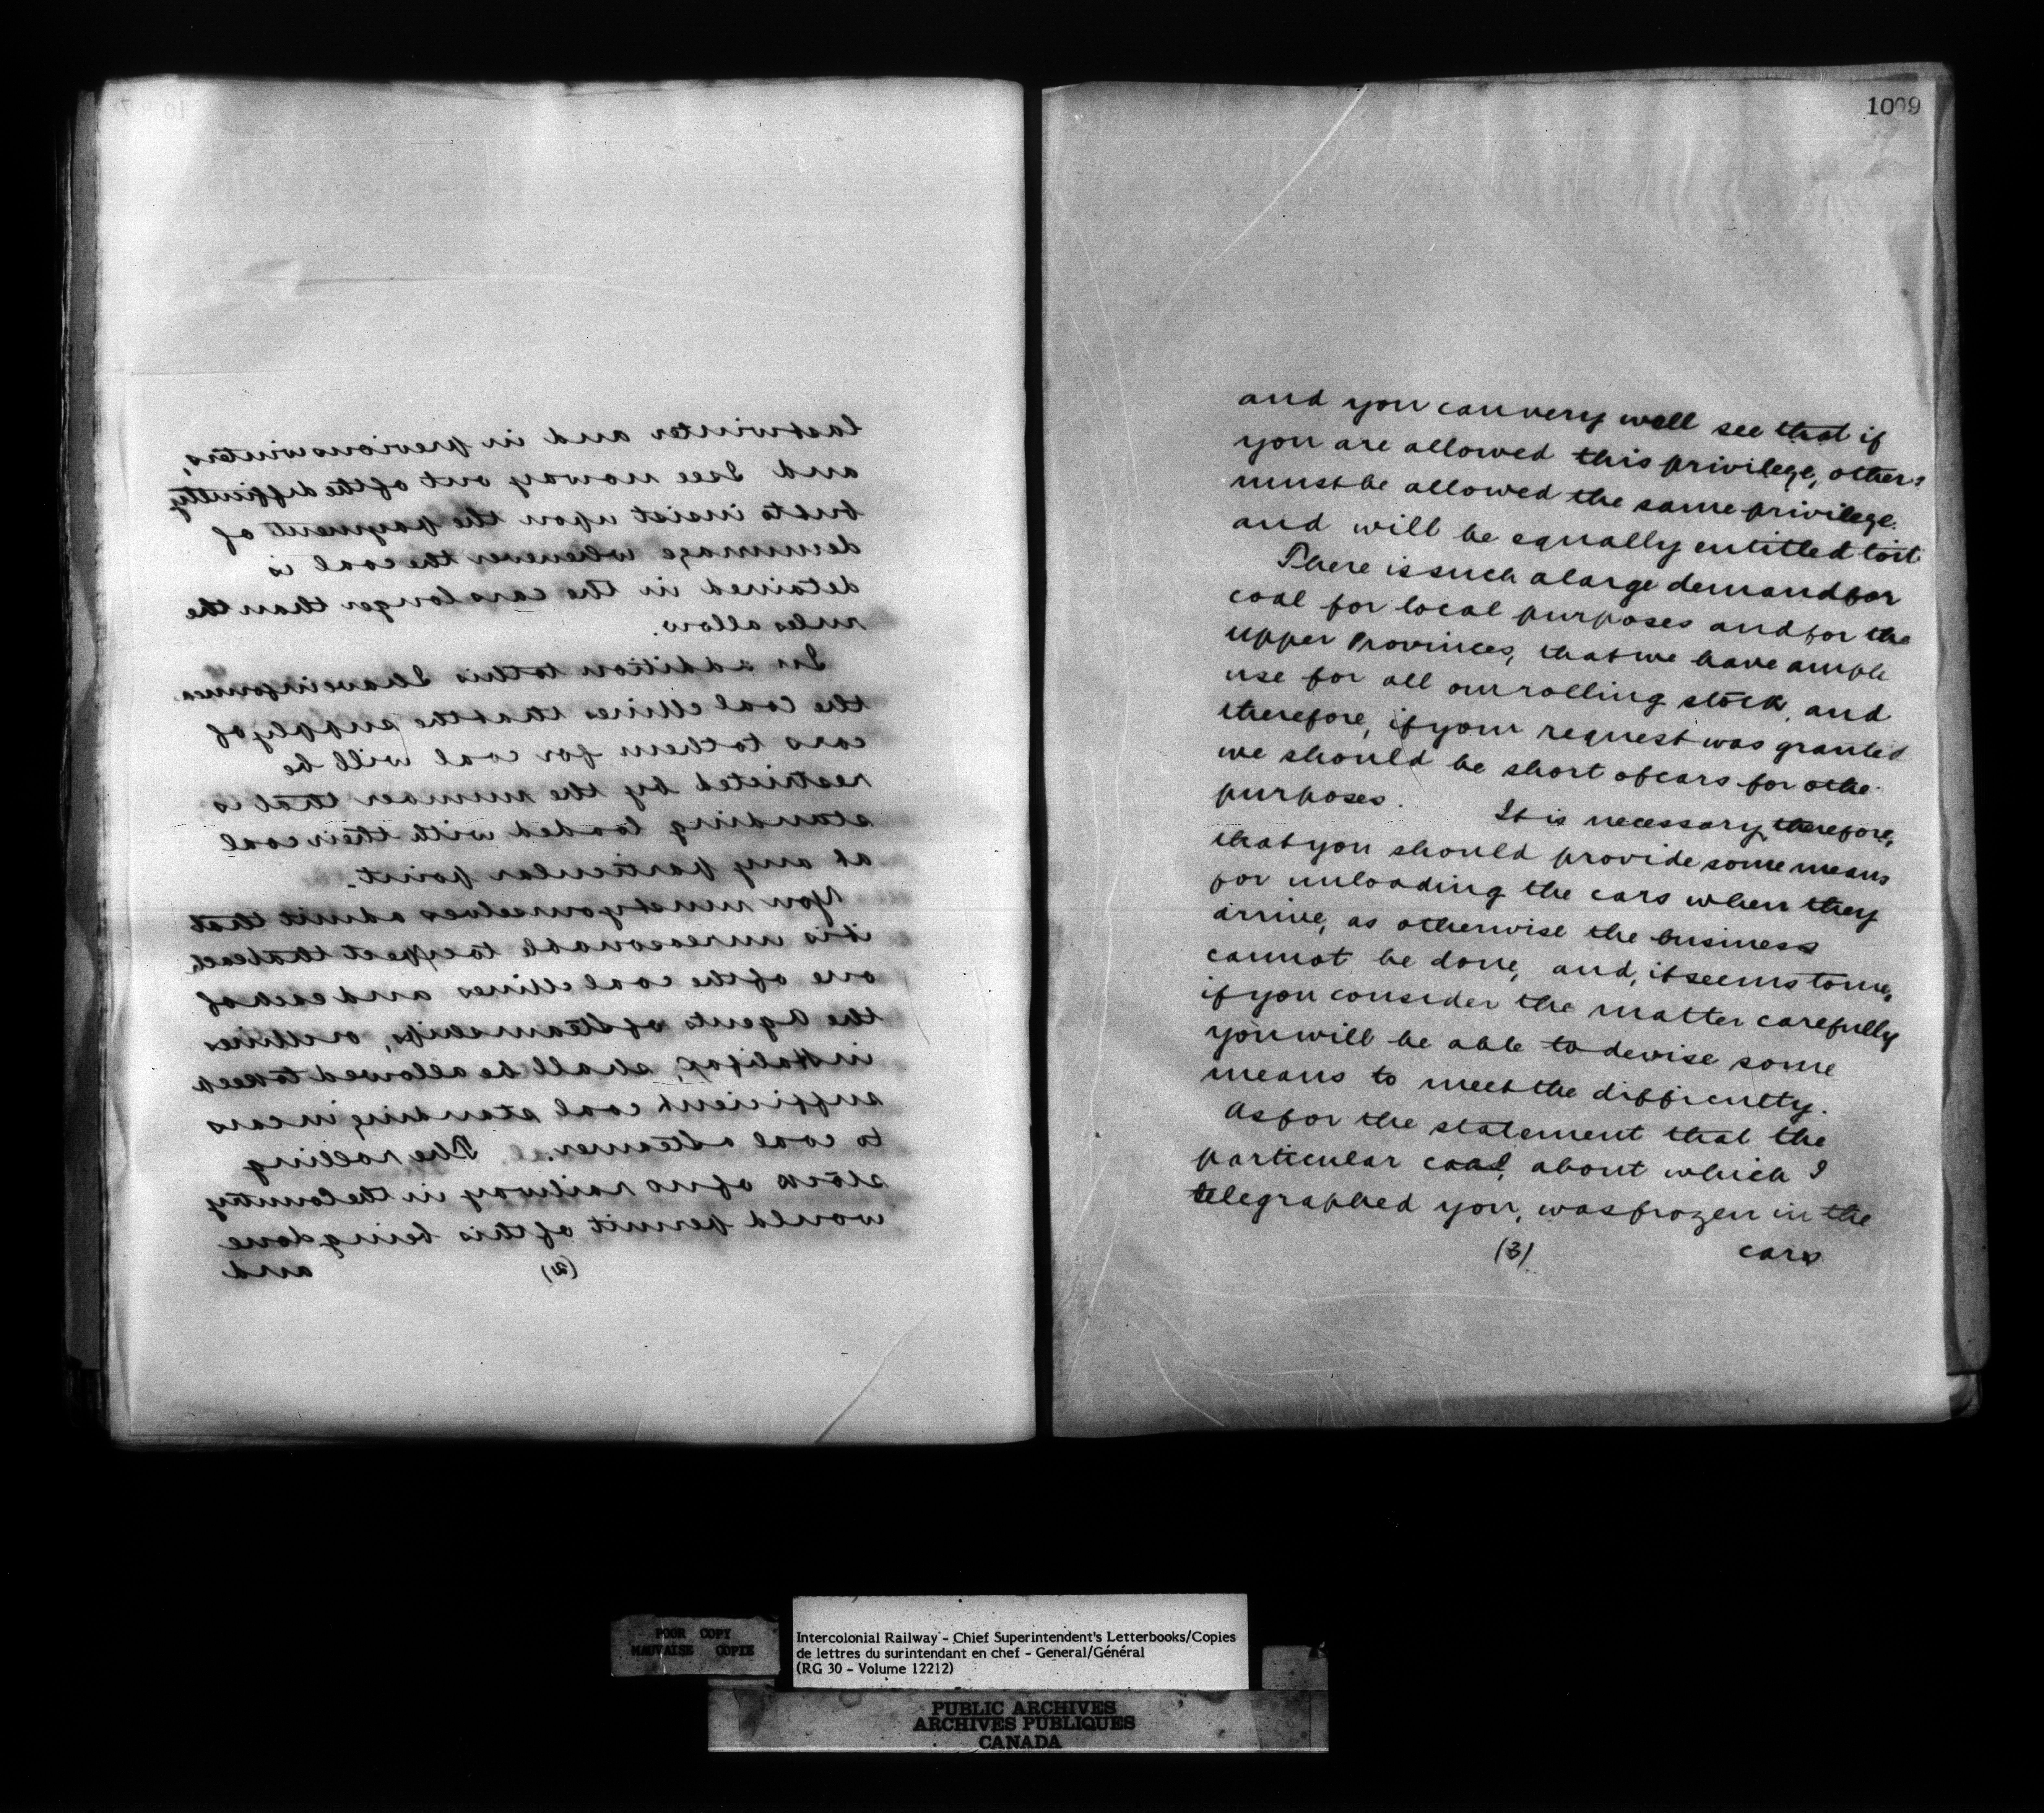 last winter and in previous winters,
and I see no way out of the difficulty
but to insist upon the payment of
demurrage whenever the coal is
detained in the cars longer than the
rules allow.
In addition to this I have informed
the coal Mines that the supply of
cars to them for coal will be
restricted by the number that is
standing loaded with their coal
at any particular point.
You must yourselves admit that
it is unreasonable to expect that each
one of the coal Mines and each of
the Agents of Steamships, or Mines
in Halifax, shall be allowed to keep
sufficient coal standing in cars
to coal a Steamer. The rolling
stock of no railway in the Country
would permit of this being done
(2) and
1009
and you can very well see that if
you are allowed this privilege, others
must be allowed the same privilege.
and will be equally entitled to it
There is such a large demand for
coal for local purposes and for the
Upper Provinces, that we have ample
use for all our rolling stock, and
therefore, if your request was granted
we should be short of cars for othe
purposes. It is necessary, therefore,
that you should provide some means
for unloading the cars when they
arrive, as otherwise the business
cannot be done, and, it seems to me,
if you consider the matter carefully
you will be able to devise some
means to meet the difficulty.
As for the statement that the
particular coal, about which I
telegraphed you, was frozen in the
(3) cars
POOR COPY
MAUVAISE COPIE
Intercolonial Railway - Chief Superintendent's Letterbooks/Copies
de lettres du surintendant en chef - General/Général
(RG 30 - Volume 12212)
PUBLIC ARCHIVES
ARCHIVES PUBLIQUES
CANADA